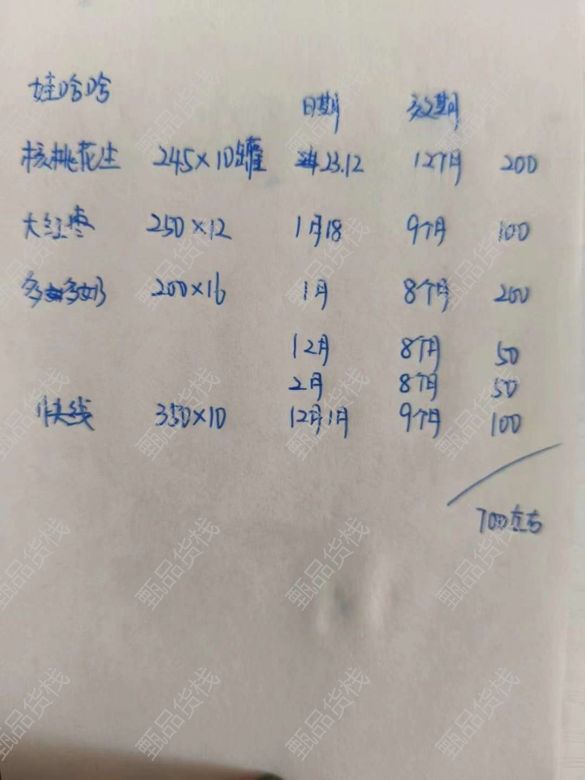 娃哈哈
日期 效期
核桃花生 245×10罐 23.12 12个月 200
大红枣 250×12 1月18 9个月 100
多多奶 200×16 1月 8个月 200
12月 8个月 50
2月 8个月 50
快线 350×10 12月1月 9个月 100
700左右
甄品货栈